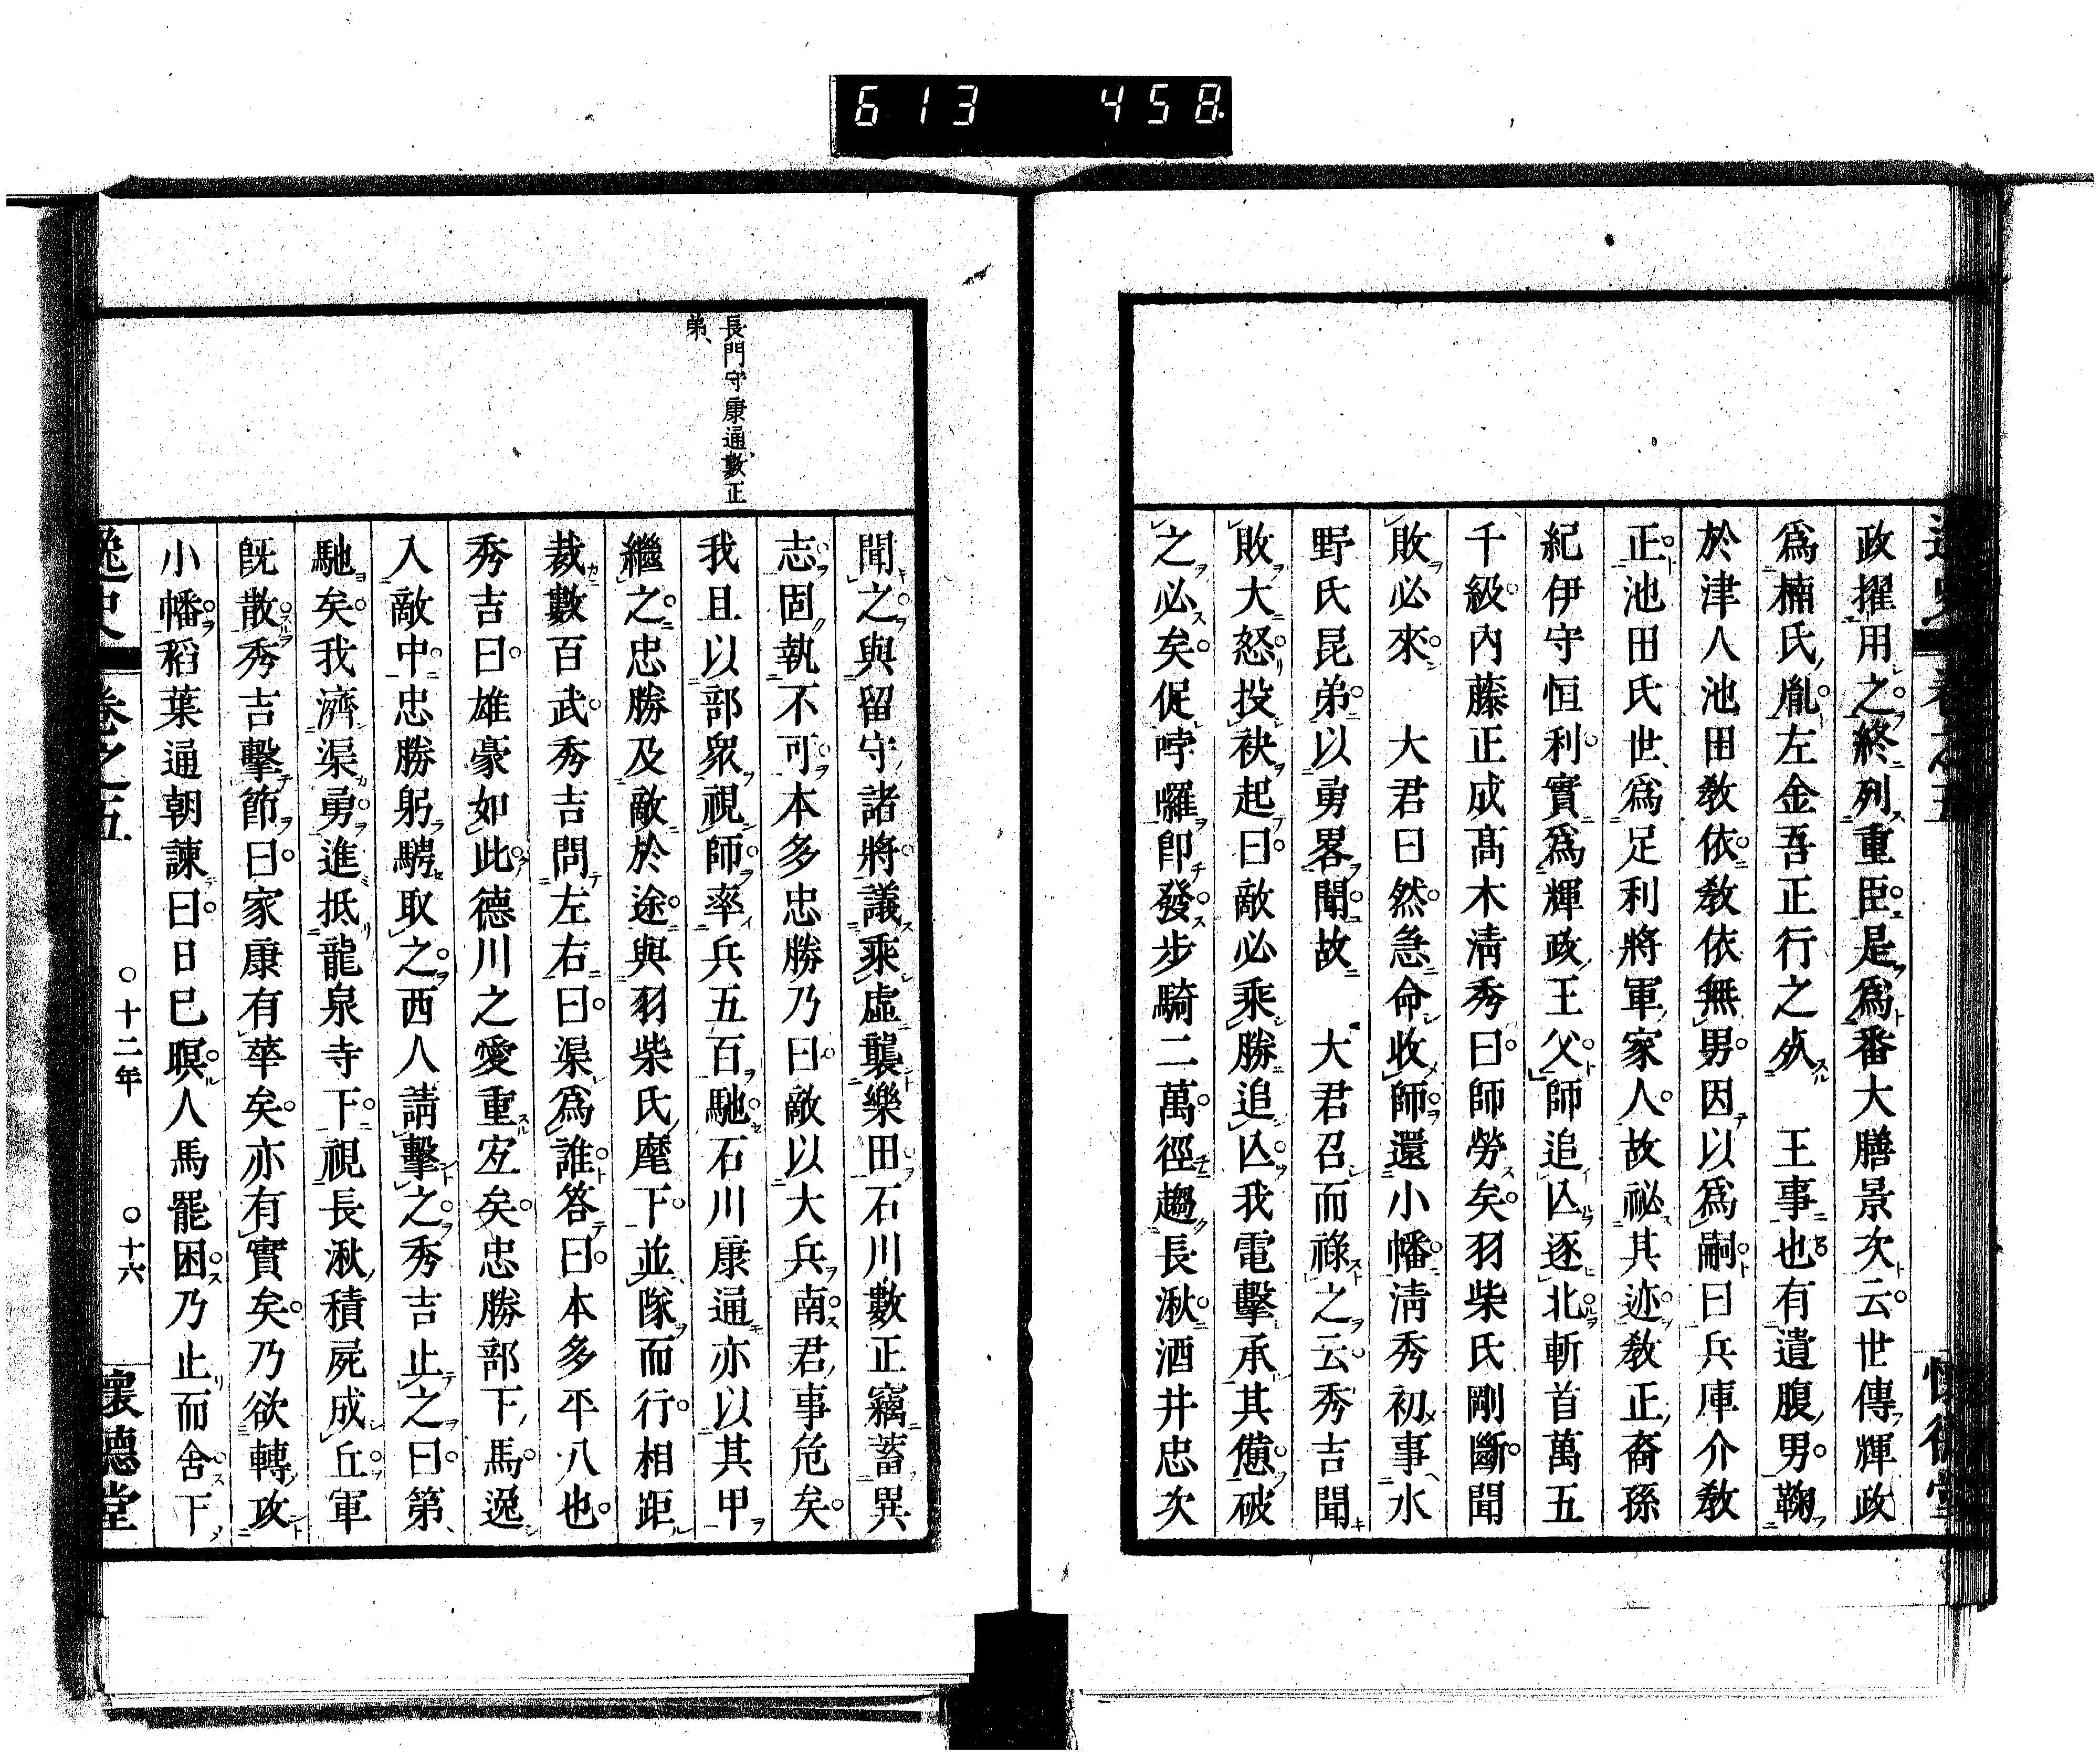 613 458
政擢用之終列重臣是爲番大膳景次云世傳輝政
爲楠氏胤左金吾正行之死 王事也有遺腹男鞠
於津人池田敎依敎依無男因以爲嗣曰兵庫介敎
正池田氏世爲足利將軍家人故祕其迹敎正裔孫
紀伊守恒利實爲輝政王父師追亾逐北斬首萬五
千級内藤正成髙木淸秀曰師勞矣羽柴氏剛斷聞
敗必來 大君曰然急命收師還小幡淸秀初事水
野氏昆弟以勇畧聞故 大君召而祿之云秀吉聞
敗大怒投袂起曰敵必乘勝追亾我電擊承其憊破
之必矣促哱囉卽發步騎二萬徑趨長湫酒井忠次
長門守康通數正
弟
聞之與留守諸將議乘虛襲樂田石川數正竊蓄異
志固執不可本多忠勝乃曰敵以大兵南君事危矣
我且以部衆視師率兵五百馳石川康通亦以其甲
繼之忠勝及敵於途與羽柴氏麾下並隊而行相距
裁數百武秀吉問左右曰渠爲誰答曰本多平八也
秀吉曰雄豪如此德川之愛重宜矣忠勝部下馬逸
入敵中忠勝躬騁取之西人請擊之秀吉止之曰第
馳矣我濟渠勇進抵龍泉寺下視長湫積屍成丘軍
旣散秀吉擊節曰家康有華矣亦有實矣乃欲轉攻
小幡稻葉通朝諫曰日已暝人馬罷困乃止而舍下
逸史 卷之五 ○十二年 ○十六 懷德堂